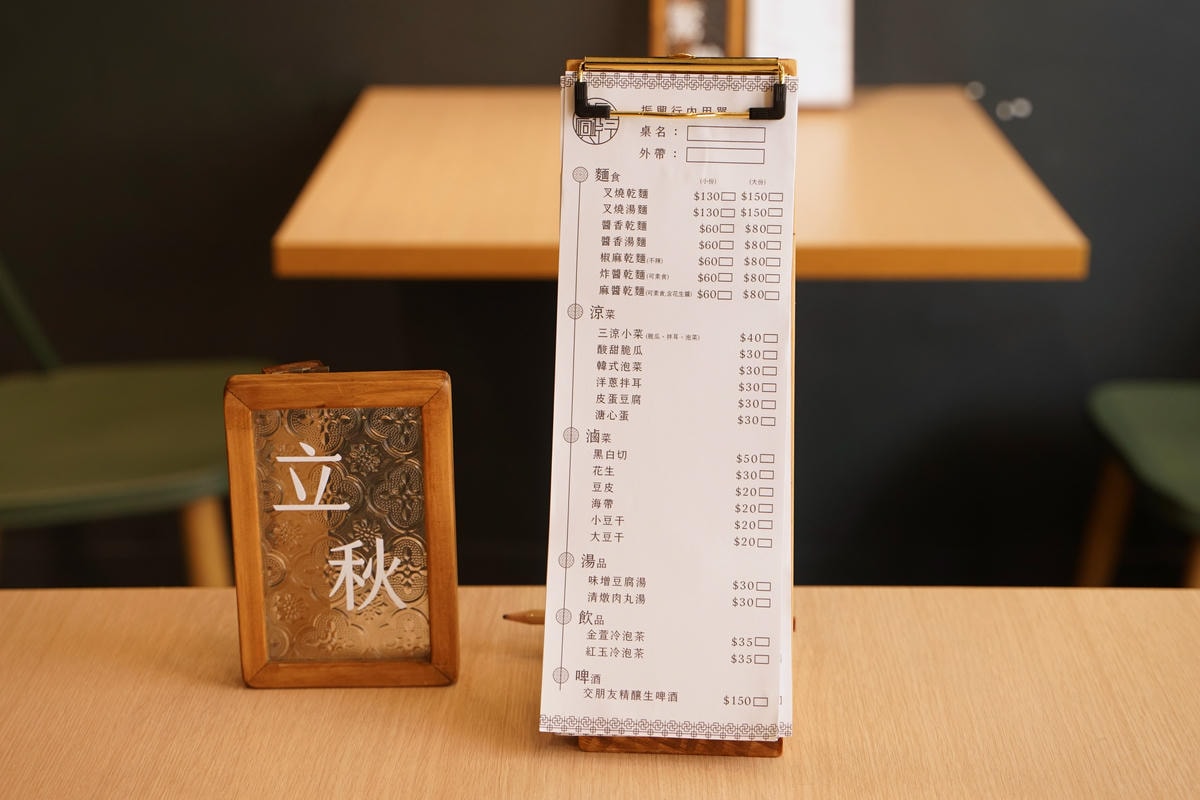 立
秋
振興行內用單
桌名：
外帶：
麵食 (小份) (大份)
叉燒乾麵 $130 $150
叉燒湯麵 $130 $150
醬香乾麵 $60 $80
醬香湯麵 $60 $80
椒麻乾麵(不辣) $60 $80
炸醬乾麵(可素食) $60 $80
麻醬乾麵(可素食,含花生醬) $60 $80
涼菜
三涼小菜(脆瓜、拌耳、泡菜) $40
酸甜脆瓜 $30
韓式泡菜 $30
洋蔥拌耳 $30
皮蛋豆腐 $30
溏心蛋 $30
滷菜
黑白切 $50
花生 $30
豆皮 $20
海帶 $20
小豆干 $20
大豆干 $20
湯品
味增豆腐湯 $30
清燉肉丸湯 $30
飲品
金萱冷泡茶 $35
紅玉冷泡茶 $35
啤酒
交朋友精釀生啤酒 $150